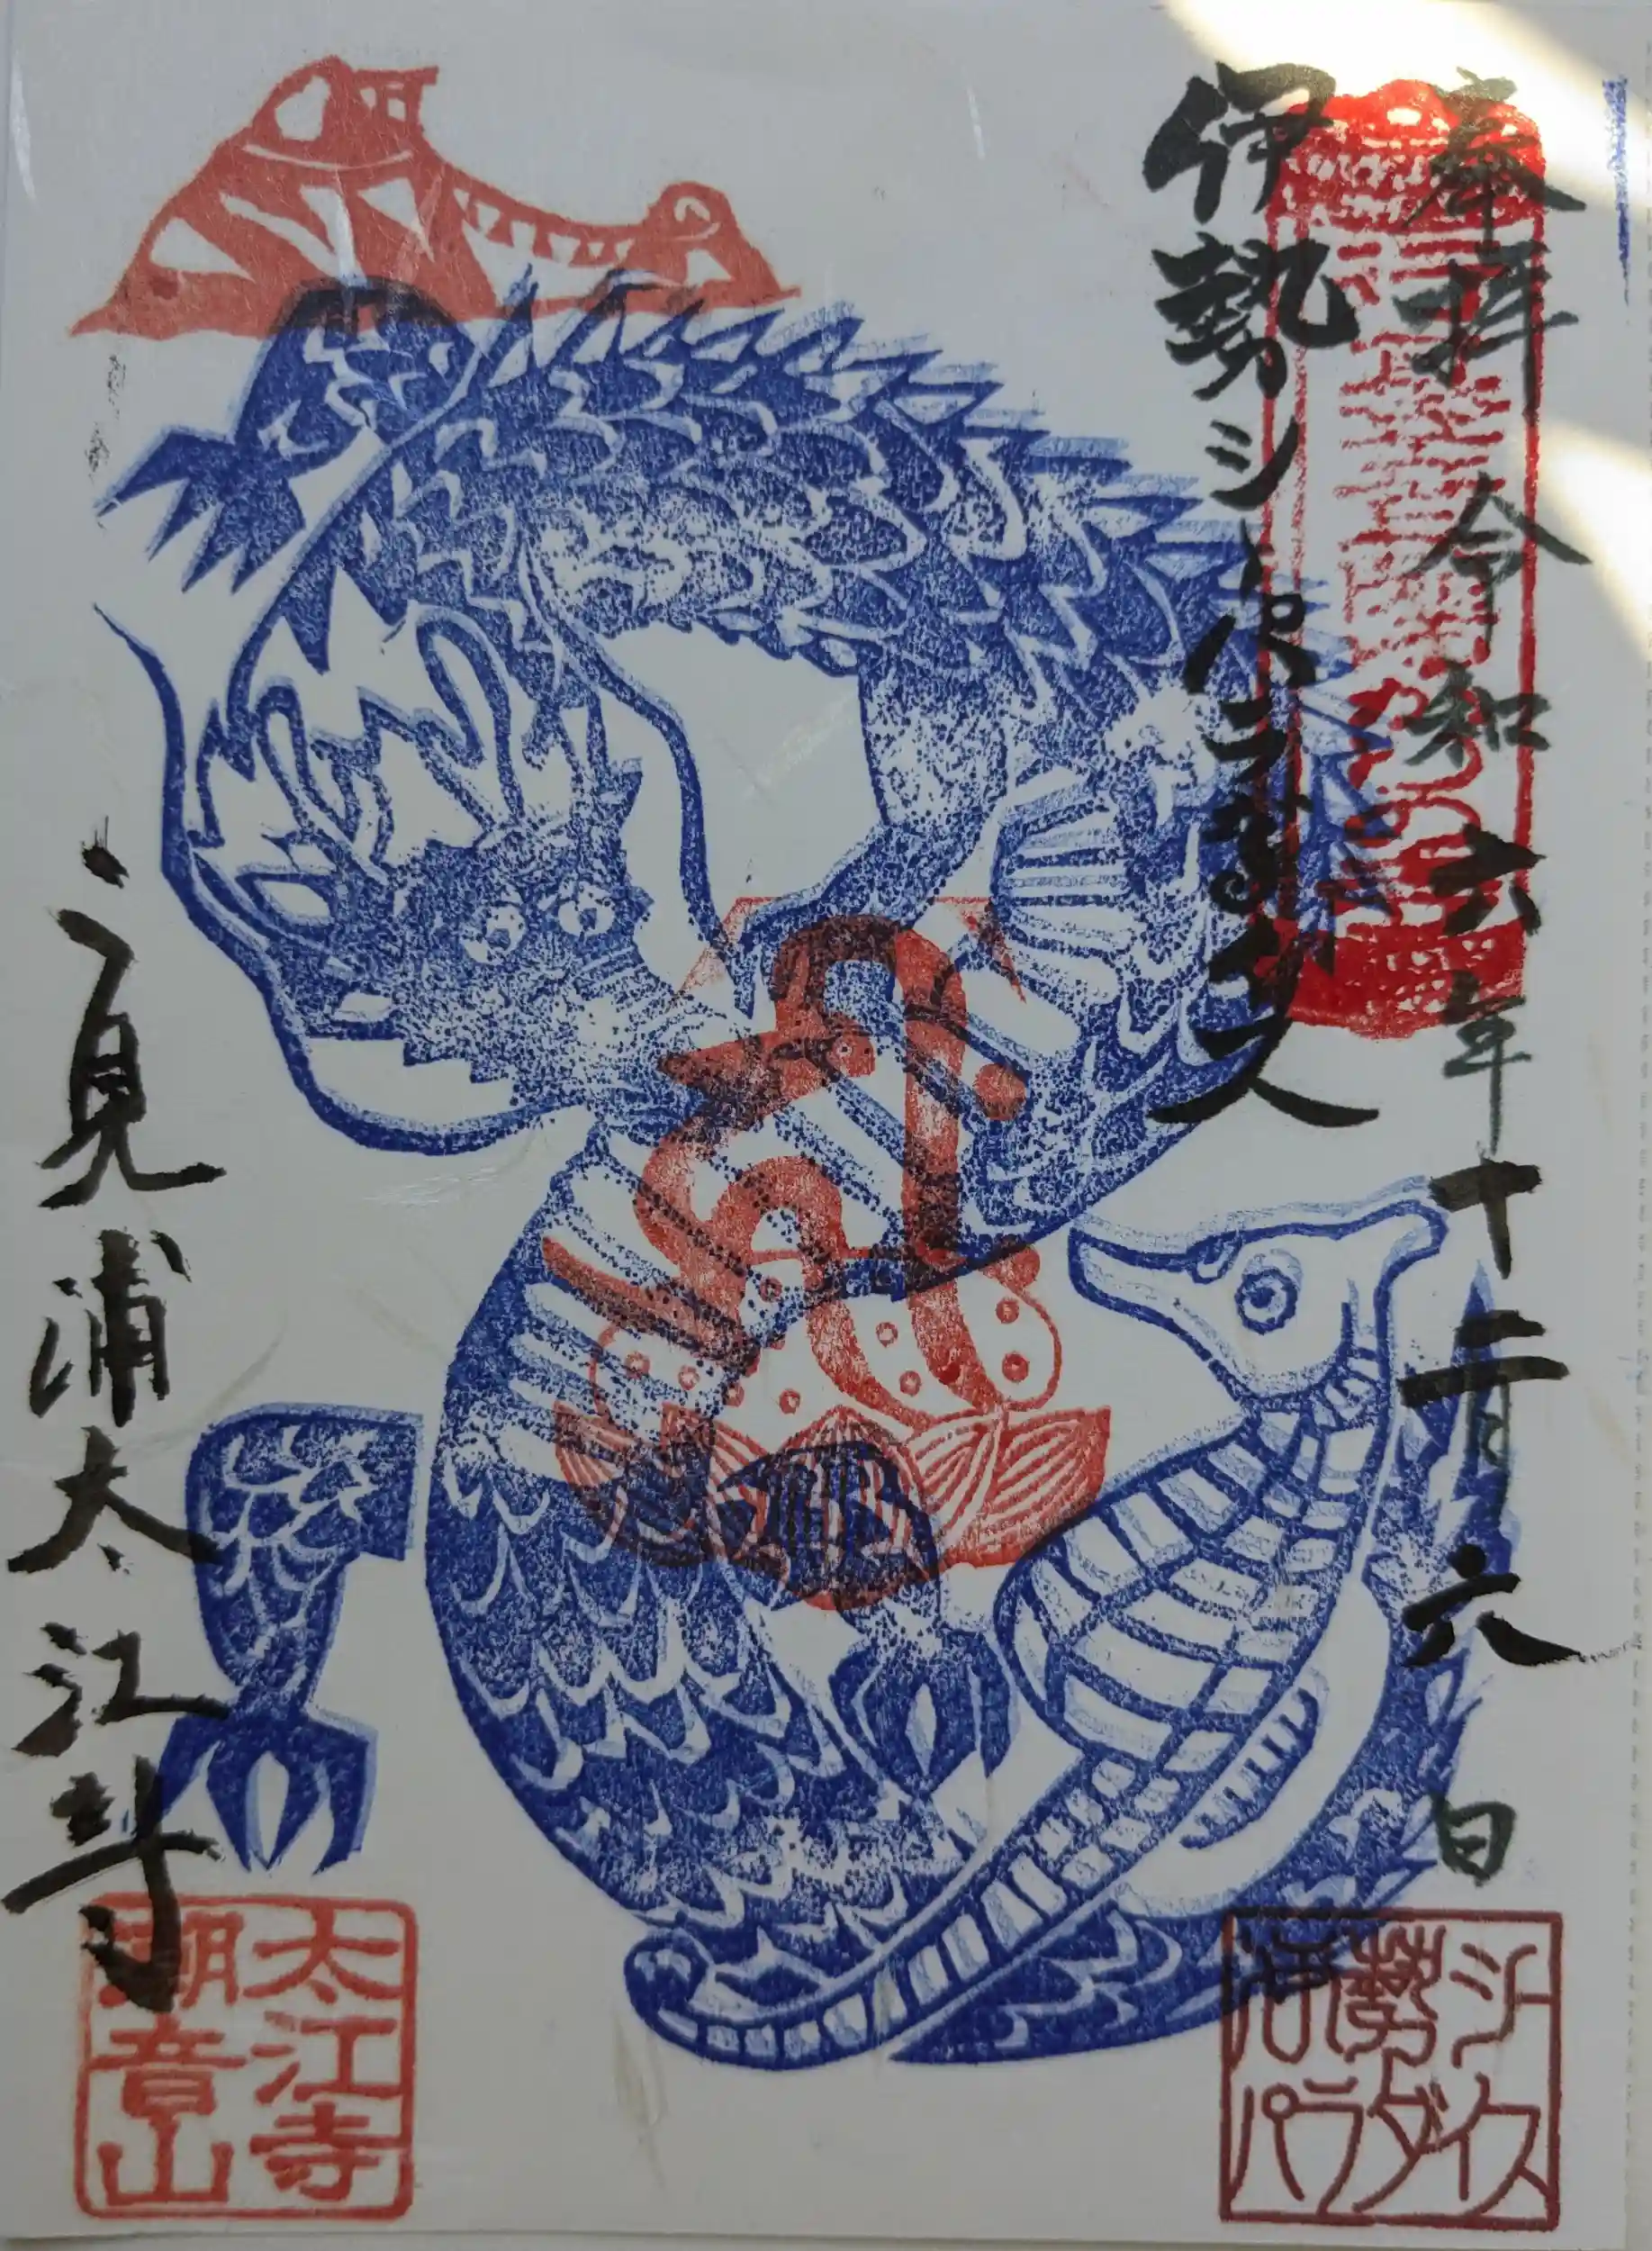 奉拝 令和六年十二月六日
伊勢シーパラダイス
二見浦太江寺
太江寺
潮音山
伊勢シー
パラダイス